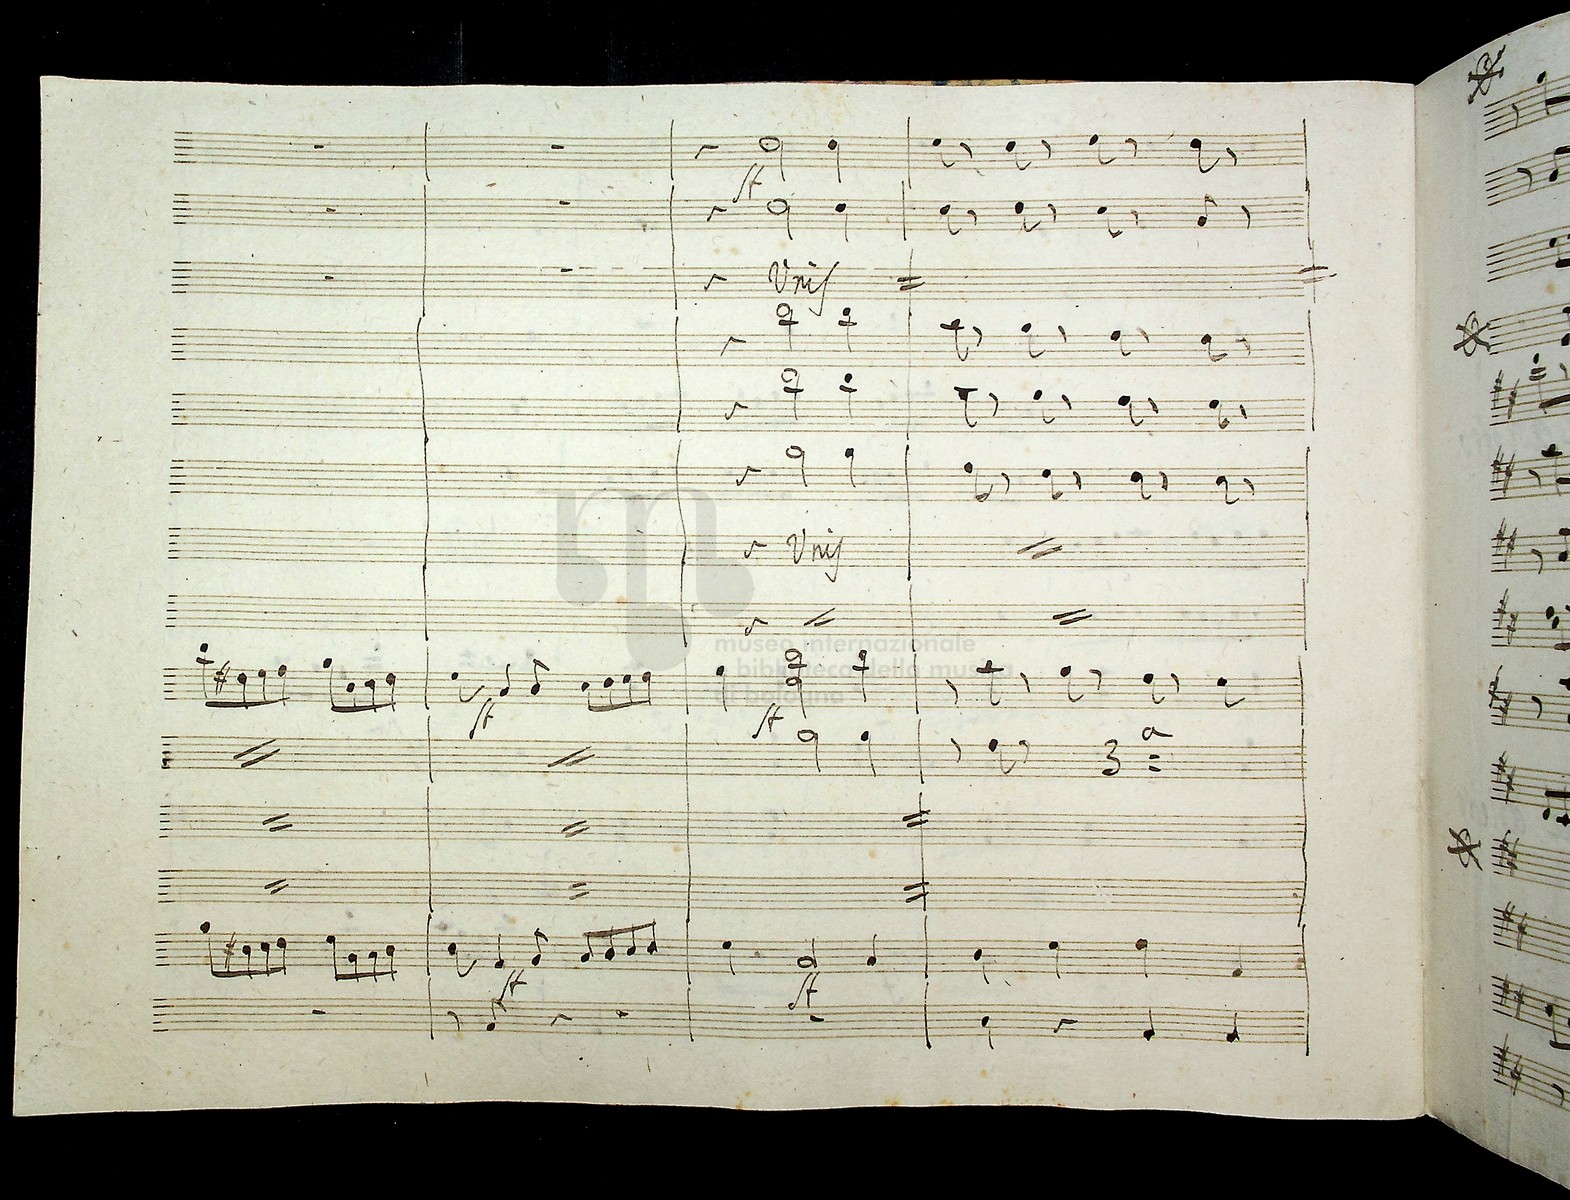 sf
Unis
Unis
museo internazionale
e biblioteca della musica
di bologna
sf
sf
3 a
sf
sf